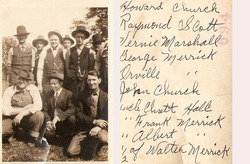 Howard Church
Raymond Scott
Vernie Marshall
George Merrick
Orville "
John Church
Uncle Hall
" Frank Merrick
" Albert "
of Walter Merrick